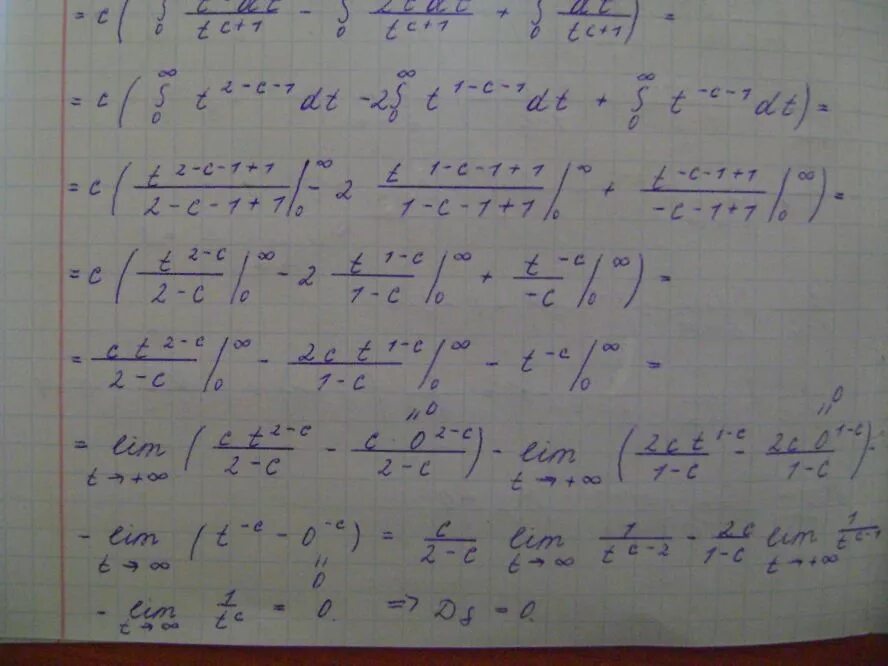 = c ( ∫₀ t² dt / t^{c+1} − ∫₀ 2t dt / t^{c+1} + ∫₀ dt / t^{c+1} ) =
= c ( ∫₀^∞ t^{2-c-1} dt − 2 ∫₀^∞ t^{1-c-1} dt + ∫₀^∞ t^{-c-1} dt ) =
= c ( t^{2-c-1+1} / (2-c-1+1) |₀^∞ − 2 t^{1-c-1+1} / (1-c-1+1) |₀^∞ + t^{-c-1+1} / (-c-1+1) |₀^∞ ) =
= c ( t^{2-c} / (2-c) |₀^∞ − 2 t^{1-c} / (1-c) |₀^∞ + t^{-c} / (-c) |₀^∞ ) =
= c t^{2-c} / (2-c) |₀^∞ − 2c t^{1-c} / (1-c) |₀^∞ − t^{-c} |₀^∞ =
= lim_{t→+∞} ( c t^{2-c} / (2-c) − c · 0^{2-c} / (2-c) ) − lim_{t→+∞} ( 2c t^{1-c} / (1-c) − 2c 0^{1-c} / (1-c) ) −
"0 "0
− lim_{t→∞} ( t^{-c} − 0^{-c} ) = c / (2-c) lim_{t→∞} 1 / t^{c-2} − 2c / (1-c) lim_{t→+∞} 1 / t^{c-1}
" 0
− lim_{t→∞} 1 / t^c = 0. => Dξ = 0.